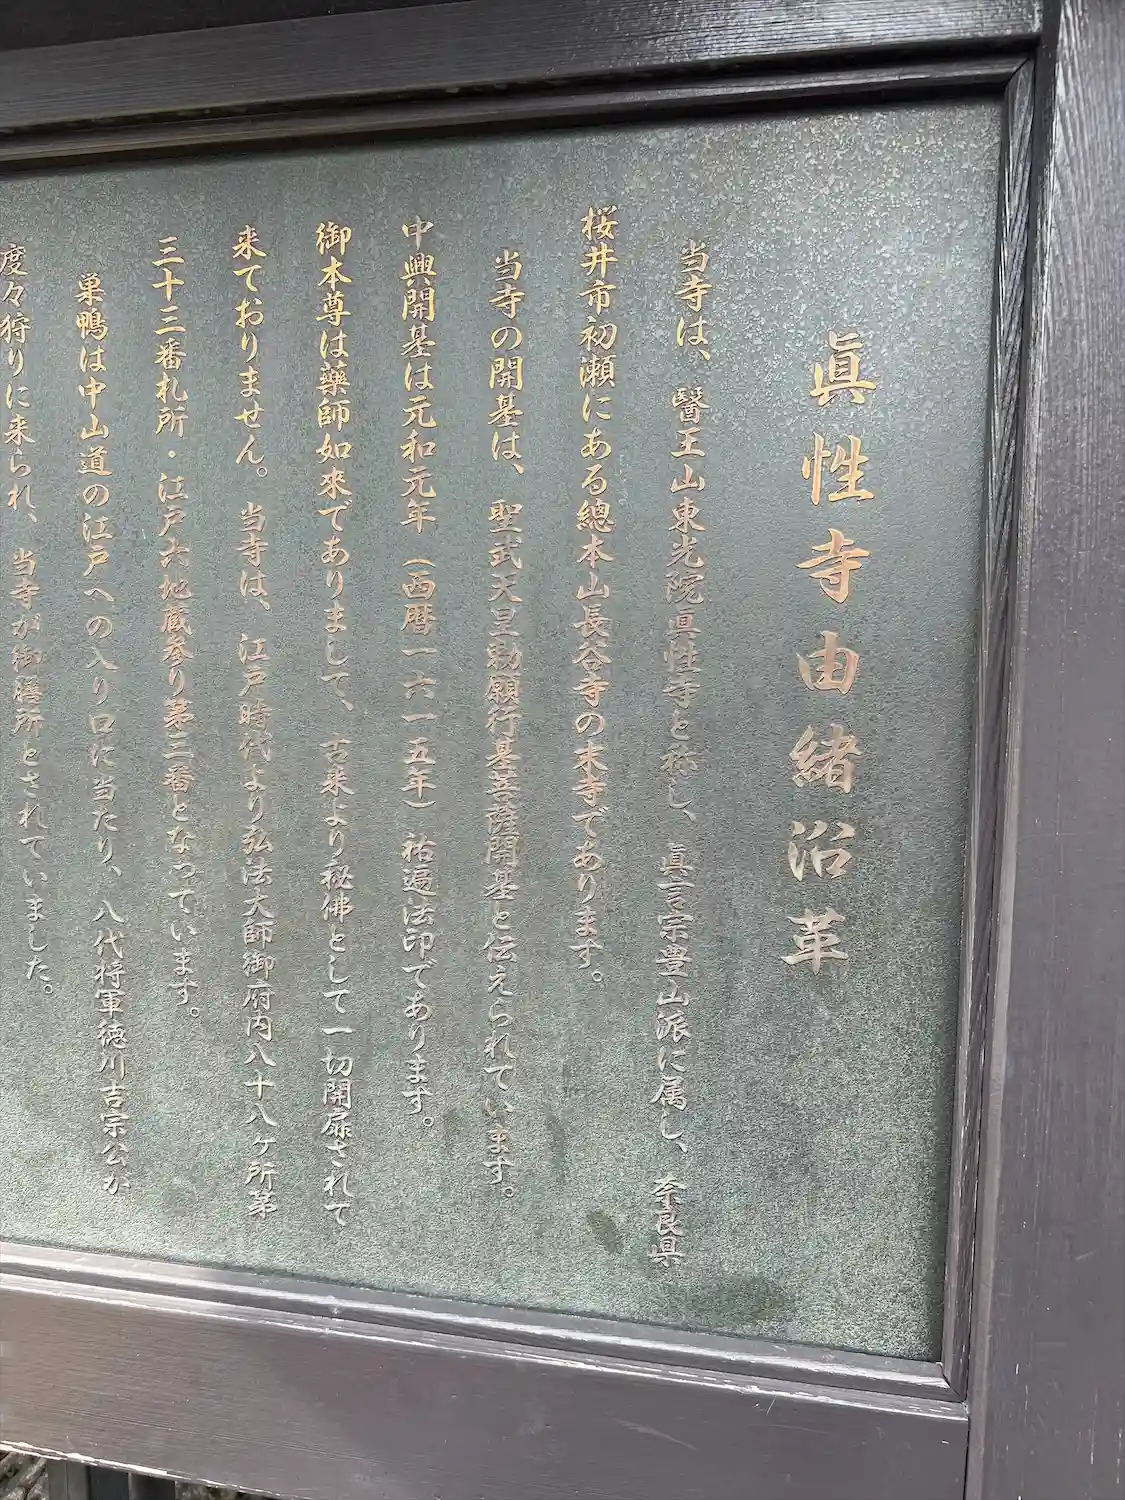 眞性寺由緒沿革
当寺は、醫王山東光院眞性寺と称し、眞言宗豊山派に属し、奈良県
桜井市初瀬にある總本山長谷寺の末寺であります。
当寺の開基は、聖武天皇勅願行基菩薩開基と伝えられています。
中興開基は元和元年（西暦一六一五年）祐遍法印であります。
御本尊は藥師如來でありまして、古来より秘佛として一切開扉されて
来ておりません。当寺は、江戸時代より弘法大師御府内八十八ヶ所第
三十三番札所・江戸六地蔵参り第三番となっています。
巣鴨は中山道の江戸への入り口に当たり、八代将軍徳川吉宗公が
度々狩りに来られ、当寺が御膳所とされていました。